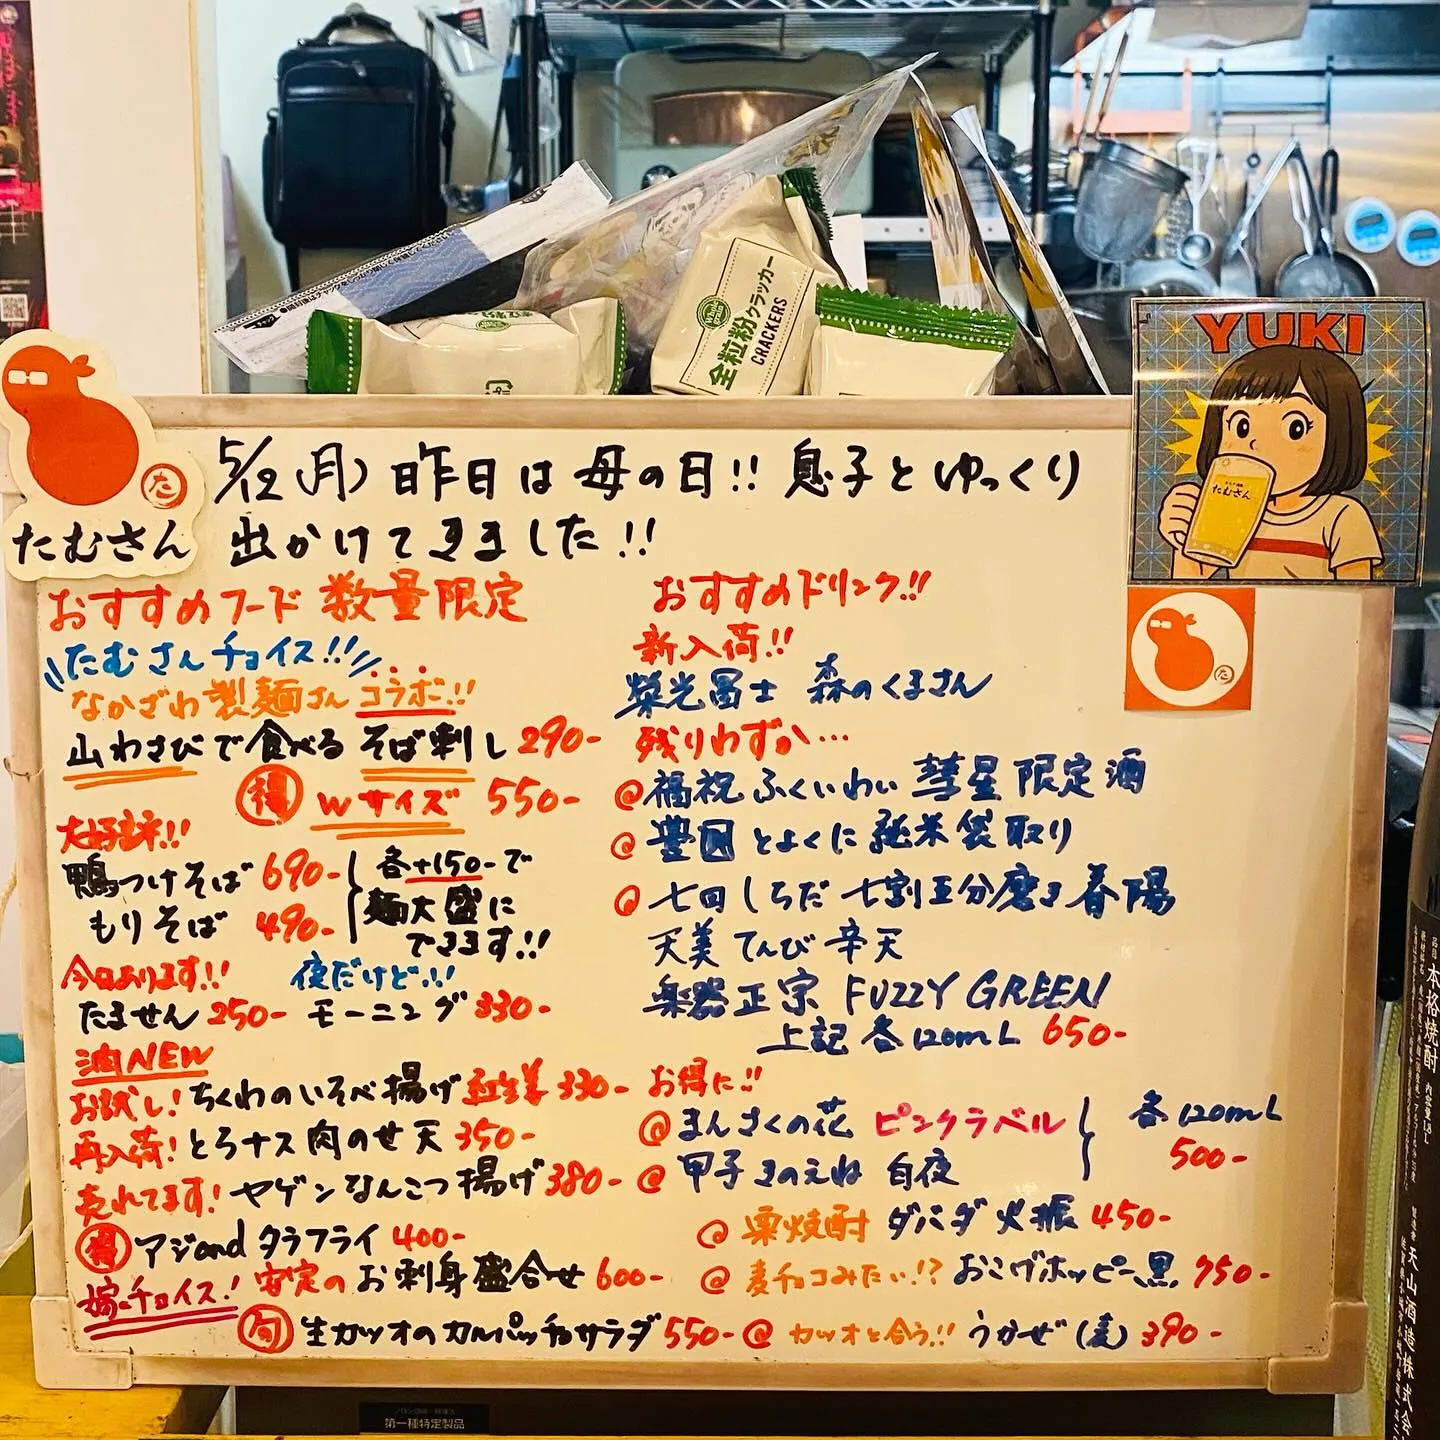 全粒粉クラッカー
CRACKERS
YUKI
たむさん
た
たむさん
5/12(月) 昨日は母の日!! 息子とゆっくり
出かけてきました!!
おすすめフード 数量限定
たむさんチョイス!!
なかざわ製麺さん コラボ!!
山わさびで食べる そば刺し 290-
得 Wサイズ 550-
大好評!!
鴨つけそば 690-
もりそば 490-
各+150-で
麺大盛に
できます!!
今日あります!! 夜だけど!!
たません 250- モーニング 330-
NEW
お試し! ちくわのいそべ揚げ 紅生姜 330-
再入荷! とろナス肉のせ天 350-
売れてます! ヤゲンなんこつ揚げ 380-
得 アジand タラフライ 400-
嫁チョイス! 安定の お刺身盛合せ 600-
旬 生カツオのカルパッチョサラダ 550-
おすすめドリンク!!
新入荷!!
榮光冨士 森のくまさん
残りわずか…
@ 福祝 ふくいわい 彗星 限定酒
@ 豊圀 とよくに 純米袋取り
@ 七田 しちだ 七割五分磨き 春陽
天美 てんび 辛天
楽器正宗 FUZZY GREEN
上記各120mL 650-
お得に!!
@ まんさくの花 ピンクラベル
@ 甲子 きのえね 白夜
各120mL
500-
@ 栗焼酎 ダバダ火振 450-
@ 麦チョコみたい!? おこげホッピー黒 750-
@ カツオと合う!! うかぜ(麦) 390-
た
本格焼酎
天山酒造株式会
第一種特定製品